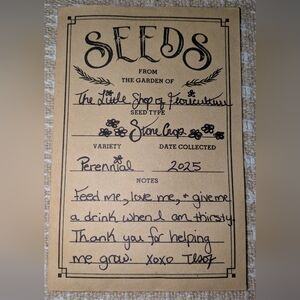 SEEDS
FROM
THE GARDEN OF
The Little Shop of Floriculture
SEED TYPE
Stone Crop
VARIETY DATE COLLECTED
Perennial 2025
NOTES
Feed me, love me, + give me
a drink when I am thirsty.
Thank you for helping
me grow. xoxo TLSoF